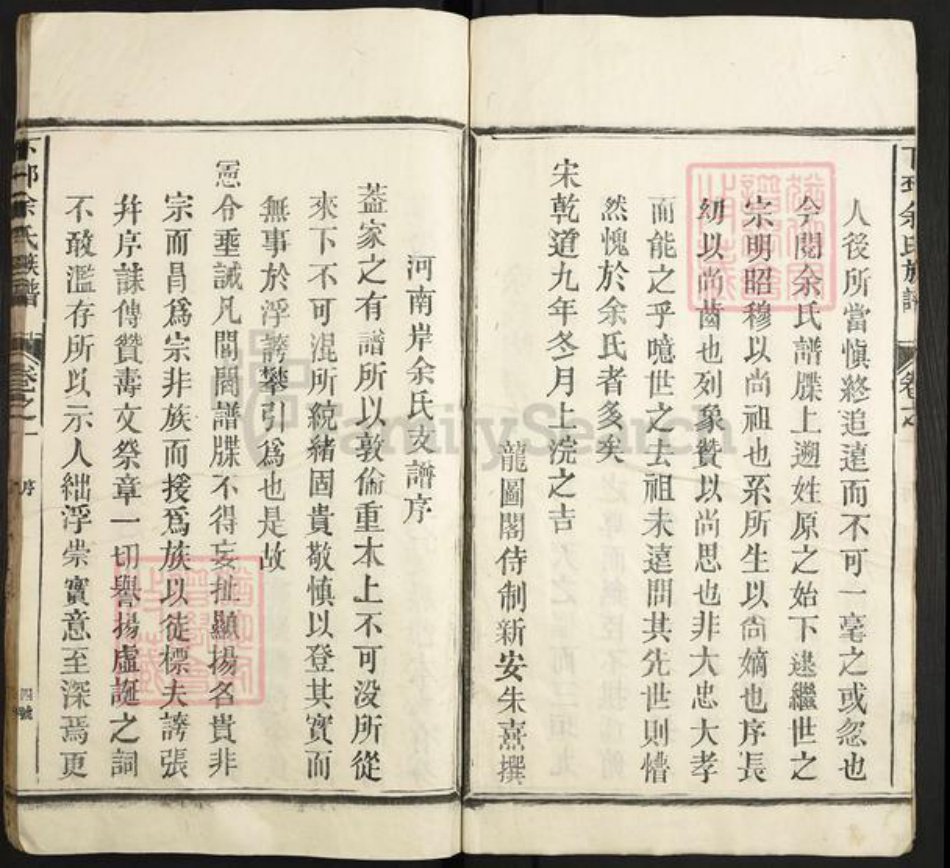 余氏族譜
卷之一
人後所當慎終追遠而不可一毫之或忽也
今閱余氏譜牒上遡姓原之始下逮繼世之
宗明昭穆以尚祖也系所生以尙嫡也序長
幼以尚齒也列象贊以尚思也非大忠大孝
而能之乎噫世之去祖未遠問其先世則懵
然愧於余氏者多矣
宋乾道九年冬月上浣之吉
龍圖閣侍制新安朱熹撰
河南岸余氏支譜序
葢家之有譜所以敦倫重本上不可没所從
來下不可混所統緒固貴敬慎以登其實而
無事於浮誇攀引爲也是故
憲令垂誡凡閥閱譜牒不得妄扯顯揚名貴非
宗而昌爲宗非族而援爲族以徒標夫誇張
幷序誄傳贊壽文祭章一切譽揚虛誕之詞
不敢濫存所以示人絀浮崇實意至深焉更
下邳余氏族譜
卷之一
序
四號
FamilySearch